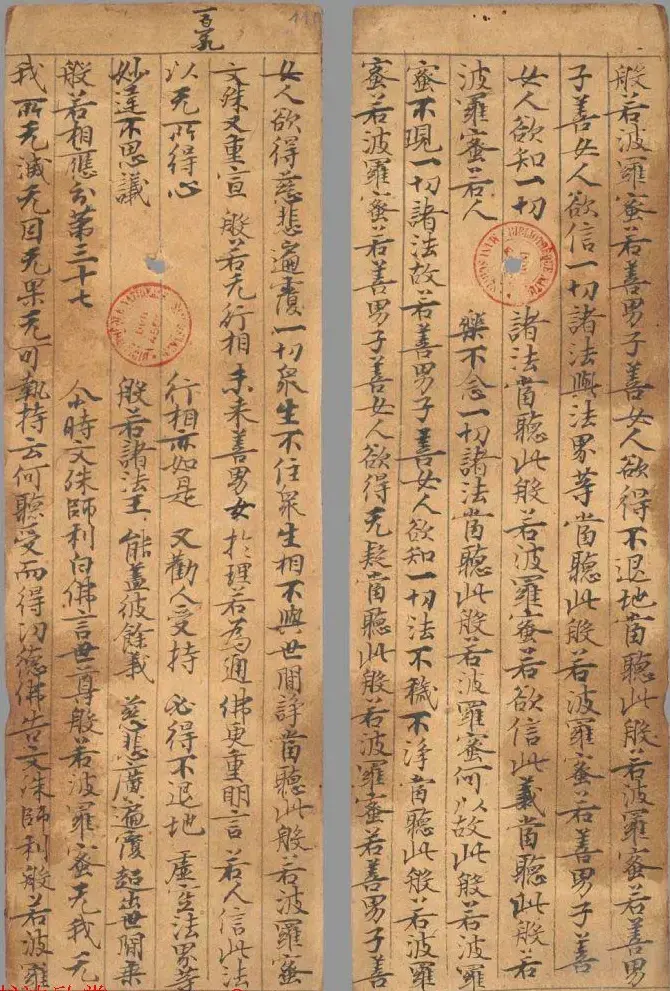 般若波羅蜜若善男子善女人欲得不退地當聽此般若波羅蜜若善男
子善女人欲信一切諸法與法界等當聽此般若波羅蜜若善男子善
女人欲知一切 諸法當聽此般若波羅蜜若欲信此義當聽此般若
波羅蜜若人 樂不念一切諸法當聽此般若波羅蜜何以故此般若波羅
蜜不現一切諸法故若善男子善女人欲知一切法不穢不淨當聽此般若波羅
蜜若波羅蜜若善男子善女人欲得无疑當聽此般若波羅蜜若善男子善
110
女人欲得慈悲遍覆一切衆生不住衆生相不與世間諍當聽此般若波羅蜜
文殊又重宣 般若无行相 未来善男女 於理若為通 佛更重明言 若人信此法
以无所得心 行相亦如是 又勸人受持 必得不退地 虛空法界等
妙達不思議 般若諸法王 能蓋彼餘義 慈悲廣遍覆 超出世間乘
般若相應分第三十七 尒時文殊師利白佛言世尊般若波羅蜜无我无
我所无滅无因无果无可執持云何聽受而得功德佛告文殊師利般若波羅